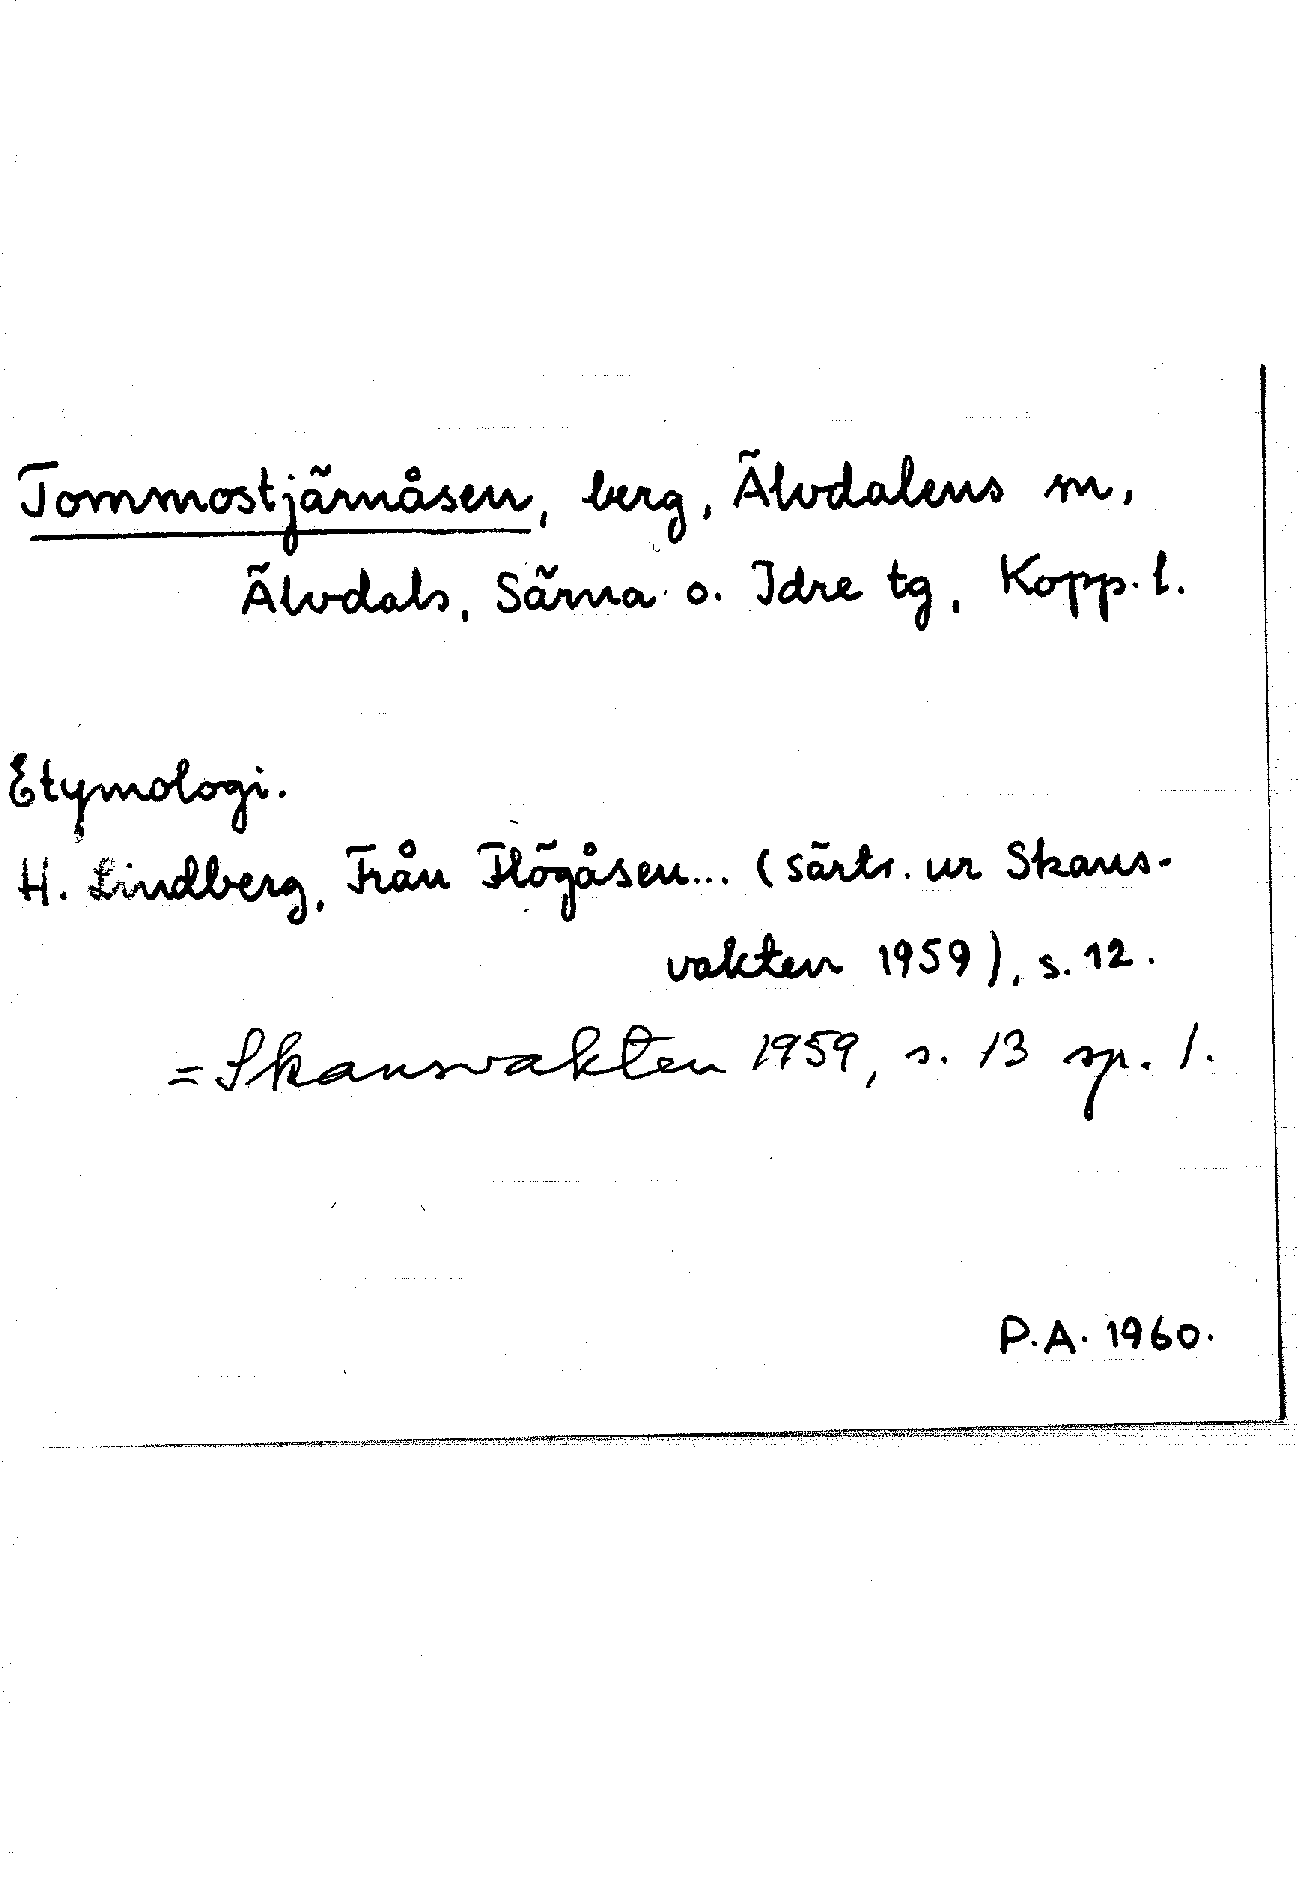 Tommostjärnåsen, berg, Älvdalens m,
Älvdals, Särna o. Idre tg, Kopp. l.
Etymologi.
H. Lindberg, Från Flögåsen... (särtr. ur Skans-
vakten 1959), s. 12.
= Skansvakten 1959, s. 13 sp. 1.
P.A. 1960.